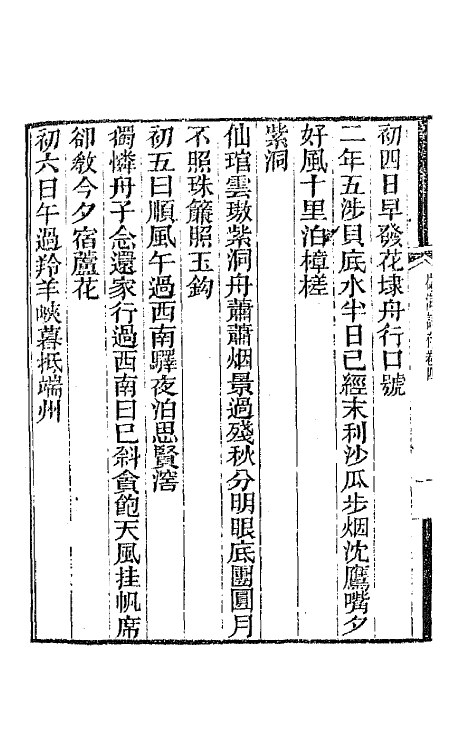 初四日早發花埭舟行口號
二年五涉貝底水半日已經末利沙瓜步烟沈鷹嘴夕
好風十里泊樟槎
紫洞
仙琯雲璈紫洞舟蕭蕭烟景過殘秋分明眼底團圓月
不照珠簾照玉鉤
初五日順風午過西南驛夜泊思賢滘
獨憐舟子念還家行過西南日已斜貪飽天風挂帆席
卻教今夕宿蘆花
初六日午過羚羊峽暮抵端州